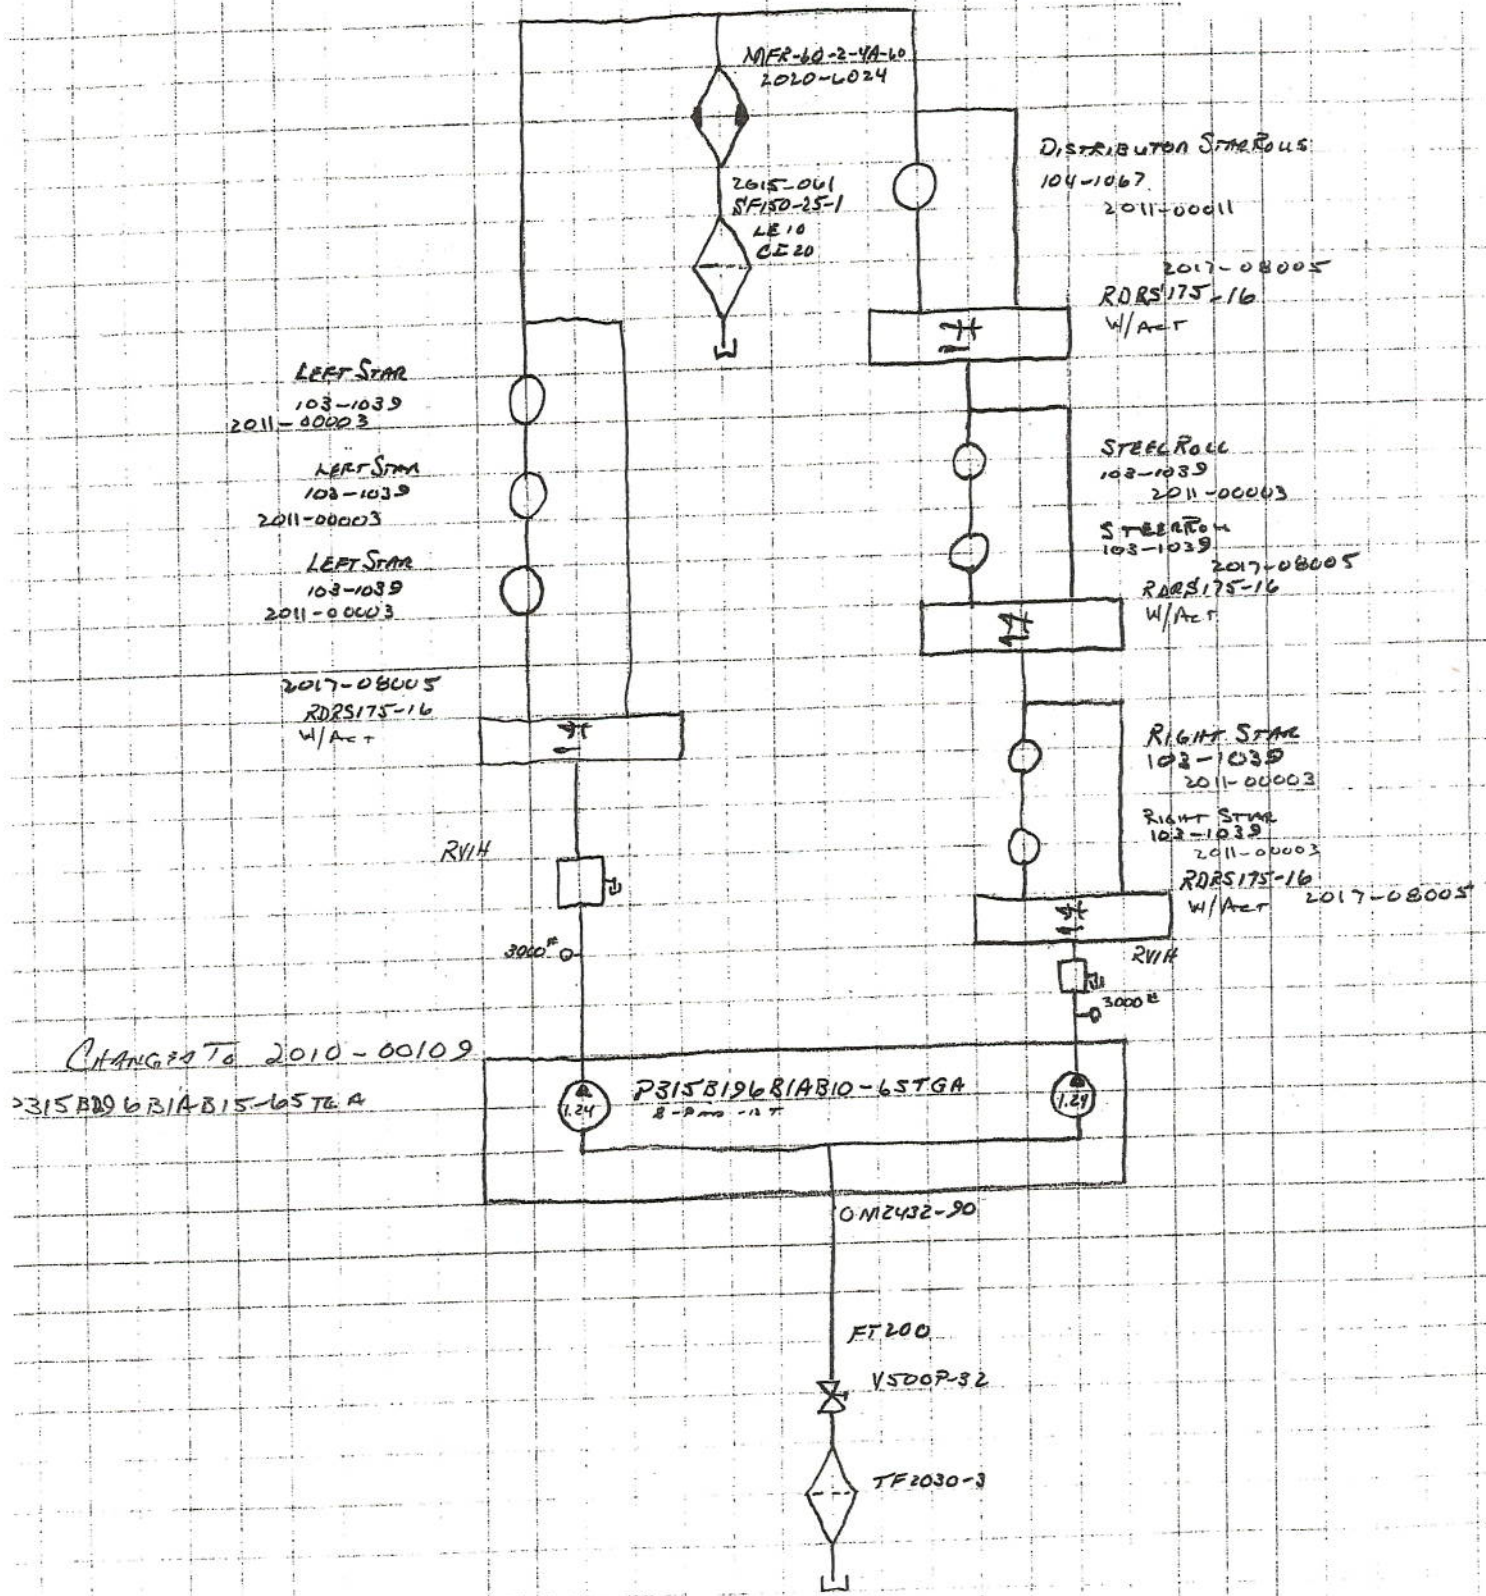 MFR-60-2-4A-60
2020-6024
2615-061
SF150-25-1
LE10
CE20
DISTRIBUTOR STAR ROLLS
104-1067
2011-00011
2017-08005
RDRS175-16
W/ACT
LEFT STAR
103-1039
2011-00003
LEFT STAR
103-1039
2011-00003
LEFT STAR
103-1039
2011-00003
2017-08005
RDRS175-16
W/ACT
STEEL ROLL
103-1039
2011-00003
STEEL ROLL
103-1039
2017-08005
RDRS175-16
W/ACT
RIGHT STAR
103-1039
2011-00003
RIGHT STAR
103-1039
2011-00003
RDRS175-16
W/ACT 2017-08005
RV1H
3000#
RV1H
3000#
CHANGES TO 2010-00109
P315B196B1AB10-65TGA
1.24
1.24
OM2432-90
FT200
V500P-32
TF2030-3